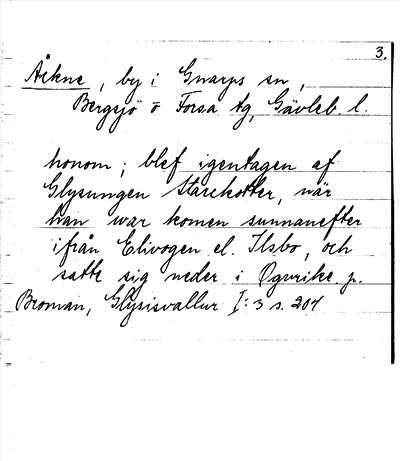 3.
Åckne, by i Gnarps sn,
Bergsjö o Forsa tg, Gävleb. l.
honom; blef igentagen af
Glysungen Starchotter, när
han war komen sunnanefter
ifrån Elivogen el. Ilsbo, och
satte sig neder i Ogurike p.
Broman, Glysisvallur I: 3 s. 204